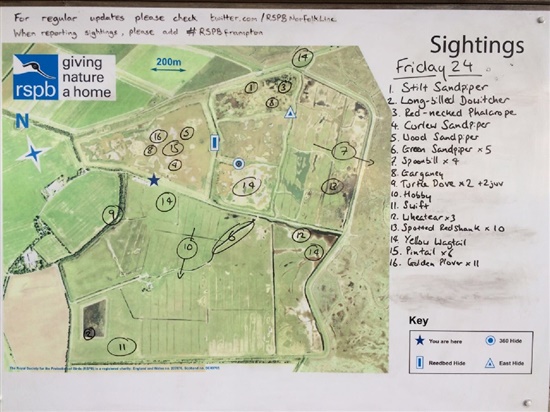 For regular updates please check twitter.com/RSPBNorfolkLinc
When reporting sightings, please add #RSPBFrampton
rspb
giving
nature
a home
200m
N
Sightings
Friday 24
1. Stilt Sandpiper
2. Long-billed Dowitcher
3. Red-necked Phalarope
4. Curlew Sandpiper
5. Wood Sandpiper
6. Green Sandpiper x 5
7. Spoonbill x 4
8. Garganey
9. Turtle Dove x2 + 2juv
10. Hobby
11. Swift
12. Wheatear x3
13. Spotted Redshank x 10
14. Yellow Wagtail
15. Pintail x6
16. Golden Plover x 11
14
1
3
8
16
5
8
15
4
7
14
13
14
9
10
6
12
14
11
Key
You are here
360 Hide
Reedbed Hide
East Hide